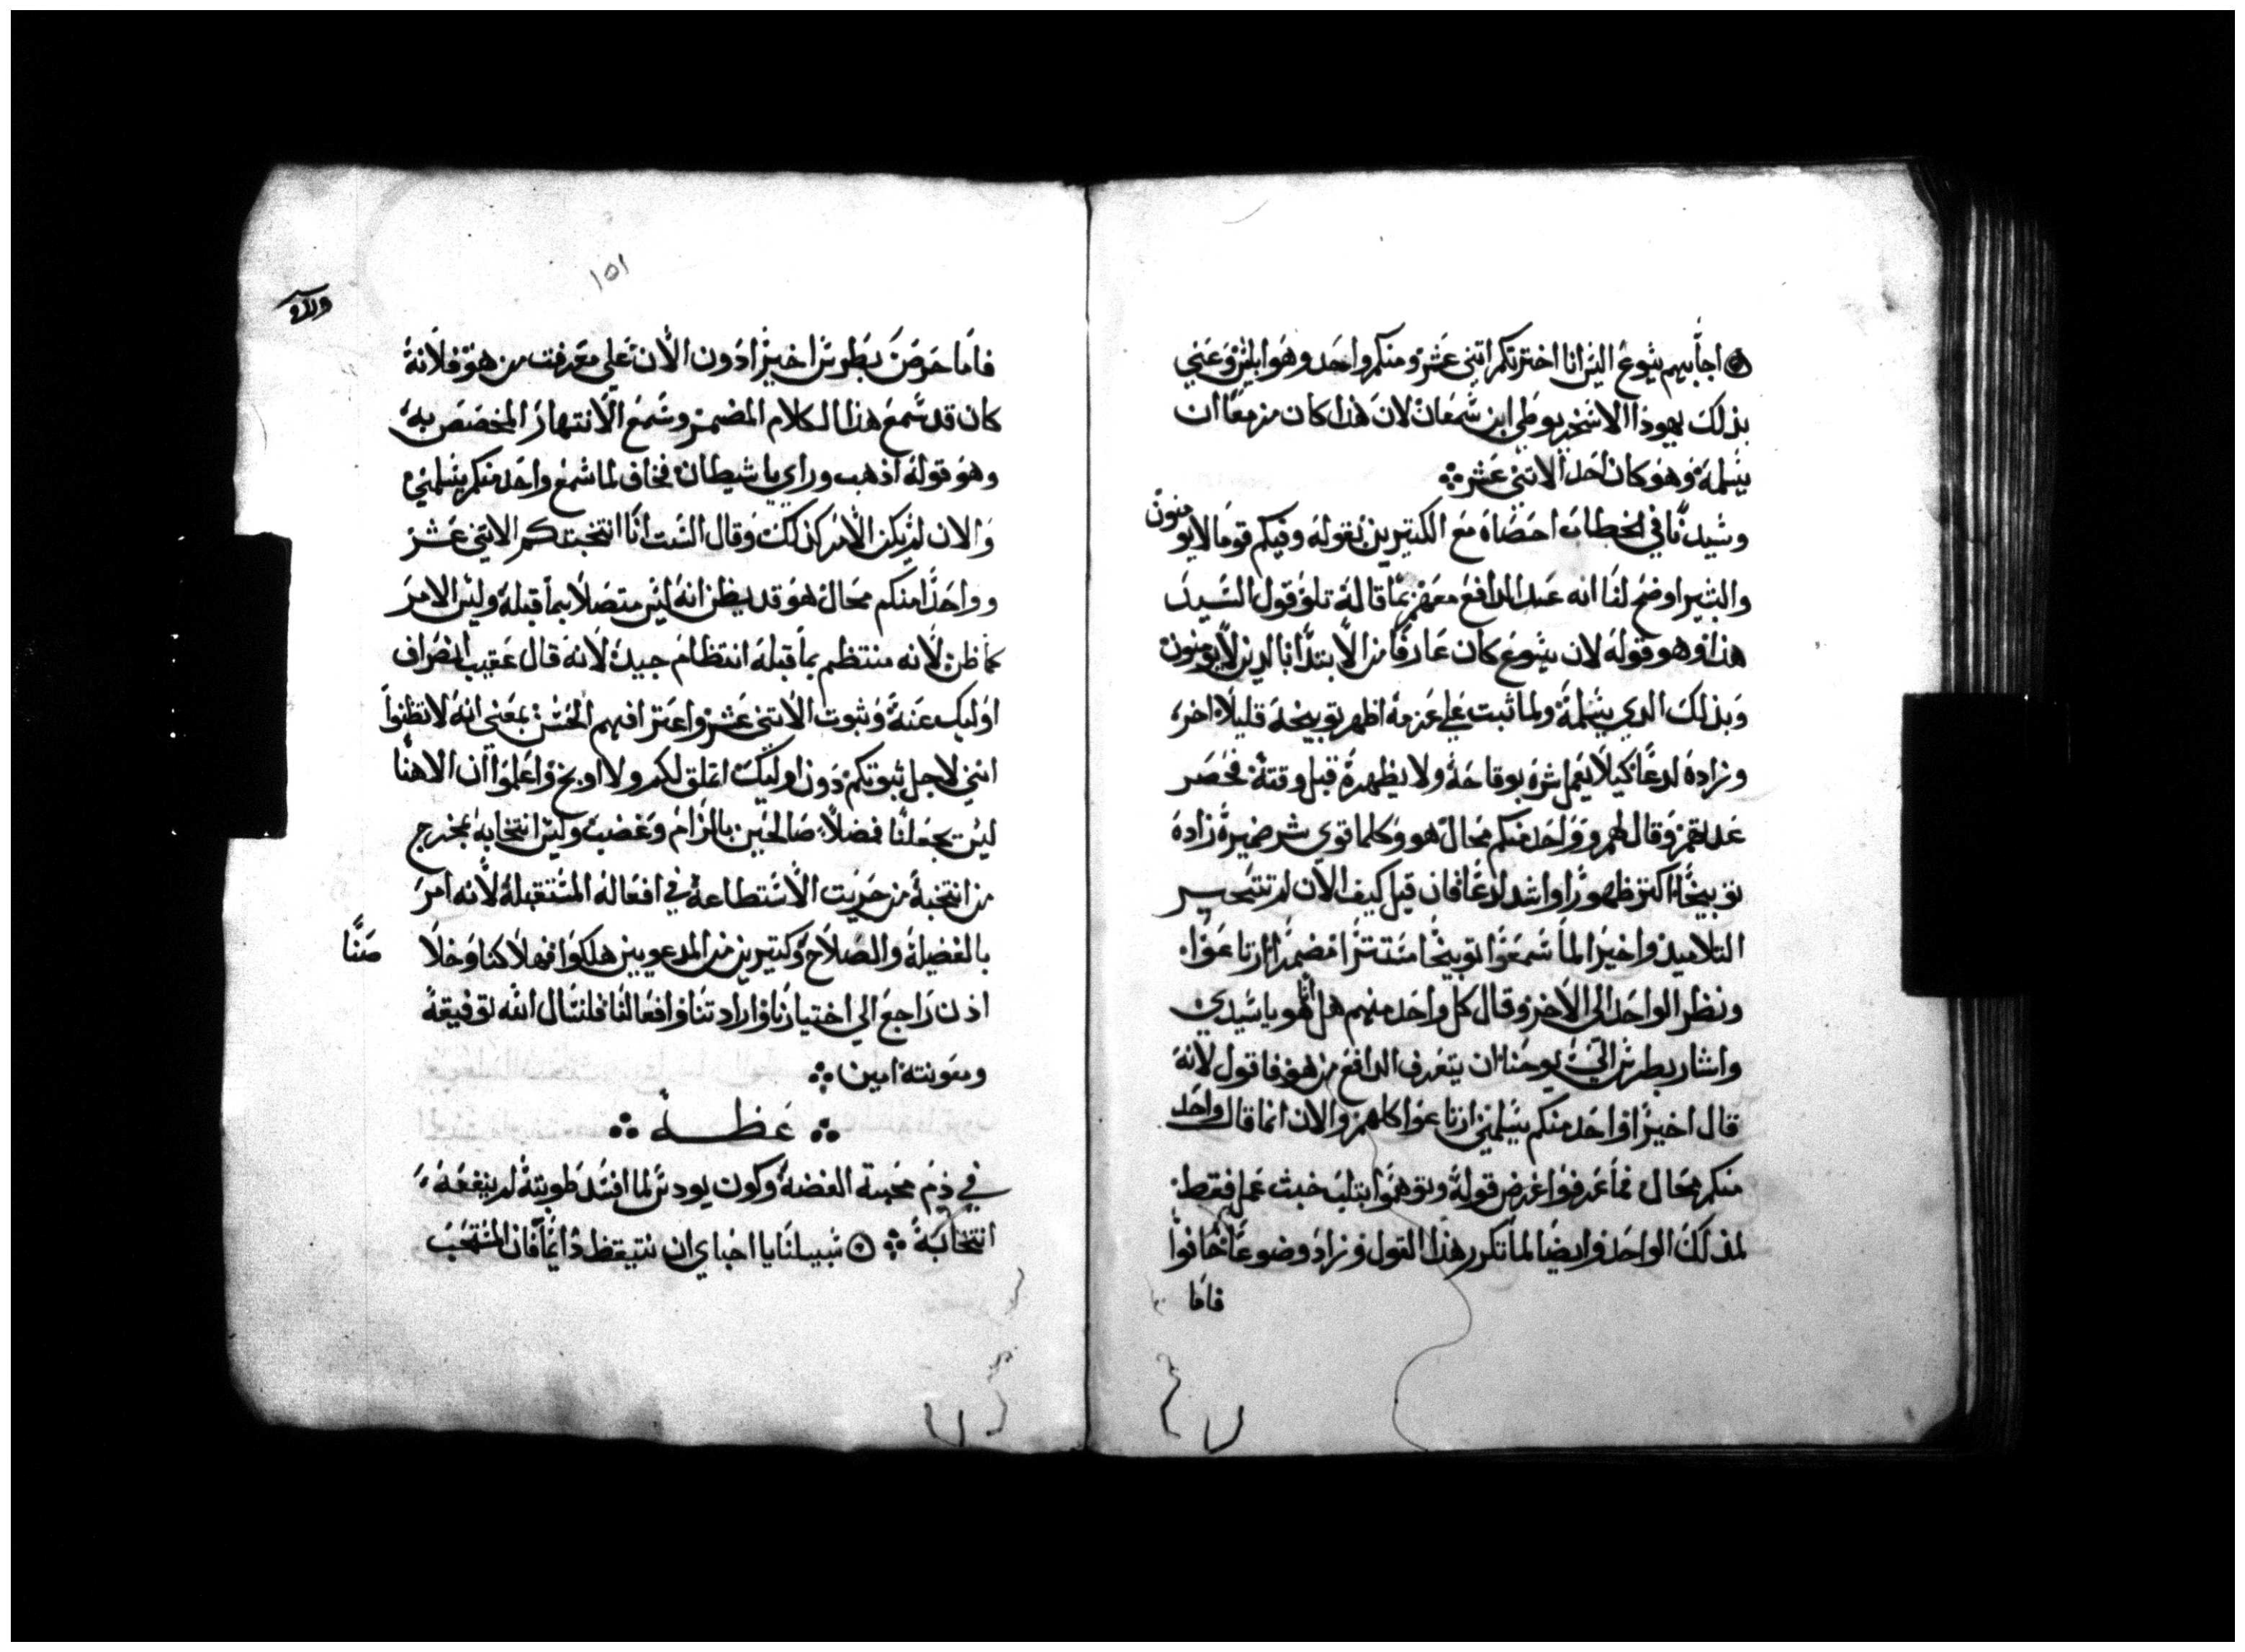 اجابهم يسوع اليس انا اخترتكم اتني عشر ومنكم واحد وهو ابليس وعني
بذلك يهوذا الاسخريوطي ابن سمعان لان هذا كان مزمعا ان
يسلمه وهو كان احد الاتني عشر
وسيدنا في الخطاب احصاه مع الكتيرين بقوله وفيكم قوما لا يومنون
والبشير اوضح لنا انه عد الدافع معهم بما قاله تلو قول السيد
هذا وهو قوله لان يسوع كان عارفا من الابتدا بالدين لا يومنون
وبذلك الدي يسلمه ولما ثبت علي عزمه اظهر توبيخه قليلا اخر
وزاده لدعا كيلا يعمل شره بوقاحة ولا يظهره قبل وقته فحصر
عددهم وقال لهم وواحد منكم محال هو وكلما قوي شر ضميره زاده
توبيخا اكتر ظهورا واشد لدغا فان قيل كيف الان لم تتحير
التلاميد واخيرا لما سمعوا توبيخا مستترا مضمرا ارتاعوا
ونظر الواحد الى الاخر وقال كل واحد منهم هل انا هو يا سيدي
واشار بطرس الي يوحنا ان يتعرف الدافع من هو فاقول لانه
قال اخيرا واحد منكم يسلمني ارتاعوا كلهم والان انما قال واحد
منكم محال فما عرفوا غرض قوله وتوهموا بتلب خبث عمل فقط
لذلك الواحد وايضا لما تكرر هذا القول وزاد وضوعا خافوا
فاما
١٥١
فاما حرص بطرس اخيرا دون الان علي معرفت من هو فلانه
كان قد سمع هذا الكلام المضمر وسمع الانتهار المخصص به
وهو قوله اذهب وراي يا شيطان فخاف لما سمع واحد منكم يسلمني
والان لم يكن الامر كذلك وقال الست انا انتخبتكم الاتني عشر
وواحدا منكم محال هو قد يظن انه ليس متصلا بما قبله وليس الامر
كما ظن لانه منتظم بما قبله انتظام جيد لانه قال عقيب انصراف
اوليك عنه وثبوت الاتني عشر واعترافهم الحسن بمعني انه لا تظنوا
انني لاجل ثبوتكم دون اوليك اتملق لكم ولا اوبخ واعلموا ان الاهنا
ليس يجعلنا فضلا صالحين بالزام وغضب وليس انتخابه بمخرج
من انتخبه من حريت الاستطاعة في افعاله المستقبله لانه امر
بالفضيله والصلاح وكتيرين من المدعويين هلكوا فهلاكنا وخلاصنا
اذن راجع الي اختيارنا وارادتنا وافعالنا فلنسال الله توفيقه
ومعونته امين
عظة
في ذم محبة الفضه وكون يودس لما افسد طويته لم ينفعه
انتخابه سبيلنا يا احباي ان نتيقظ دايما فان المنتخب